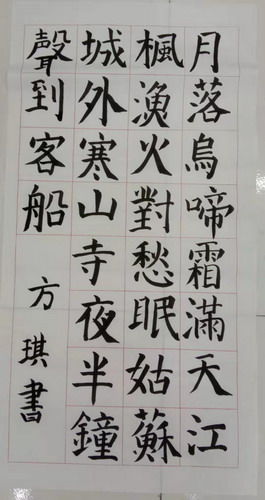 月落烏啼霜滿天江
楓漁火對愁眠姑蘇
城外寒山寺夜半鐘
聲到客船
方琪書